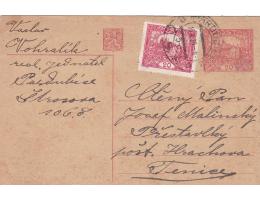 Václav
Vohralík
real. jednatel
Pardubice
Štrossova
1068
Ctěný Pan
Josef Malinský
Přestavlky
pošt. Hrochova
Teinec
20